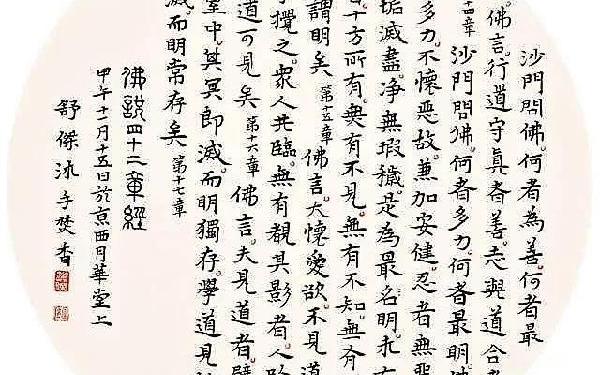 沙門問佛何者為善何者最
佛言行道守真者善志與道合者
十四章 沙門問佛何者多力何者最明佛
多力不懷惡故兼加安健忍者無惡
垢滅盡淨無瑕穢是為最名明未有
十方所有無有不見無有不知無有
謂明矣 第十五章 佛言人懷愛欲不見道
手攪之眾人共臨無有覩其影者人
道可見矣 第十六章 佛言夫見道者譬
室中其冥即滅而明獨存學道見
滅而明常存矣 第十七章
佛說四十二章經
甲午十一月十五日於京西月華堂上
舒傑沐手焚香